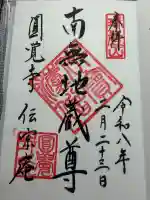 奉拝
令和八年
一月二十三日
南無地蔵尊
圓覚寺 伝宗庵